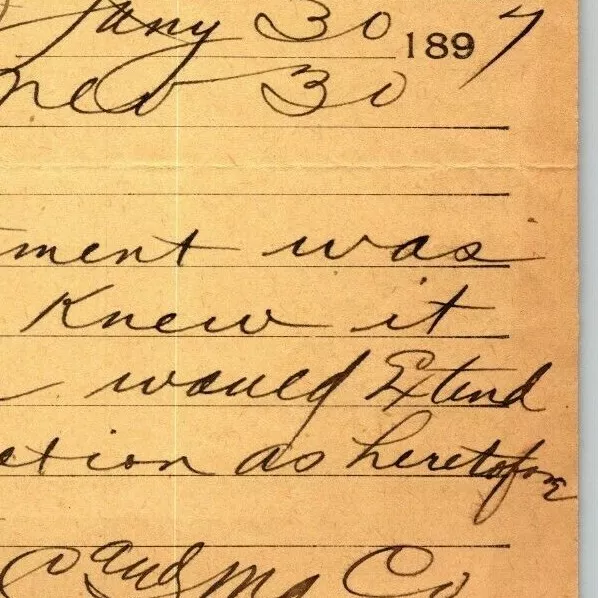 Jany 30 1897
30
ment was
Knew it
would Extend
ction as heretofore
and Mg Co